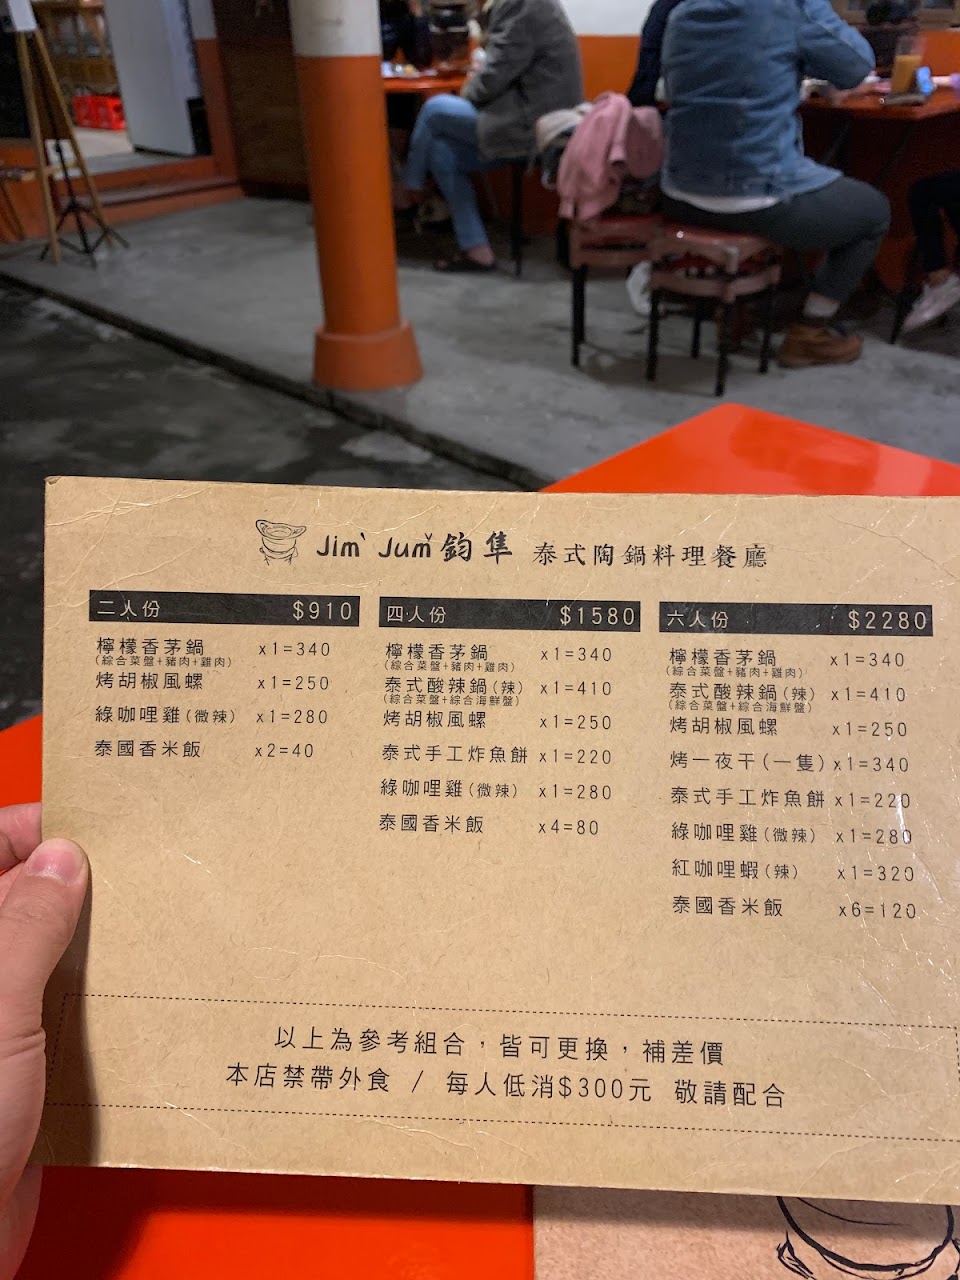 Jimˋ Jumˇ 鈞隼 泰式陶鍋料理餐廳
二人份 $910
檸檬香茅鍋 x1=340
(綜合菜盤+豬肉+雞肉)
烤胡椒風螺 x1=250
綠咖哩雞(微辣) x1=280
泰國香米飯 x2=40
四人份 $1580
檸檬香茅鍋 x1=340
(綜合菜盤+豬肉+雞肉)
泰式酸辣鍋(辣) x1=410
(綜合菜盤+綜合海鮮盤)
烤胡椒風螺 x1=250
泰式手工炸魚餅 x1=220
綠咖哩雞(微辣) x1=280
泰國香米飯 x4=80
六人份 $2280
檸檬香茅鍋 x1=340
(綜合菜盤+豬肉+雞肉)
泰式酸辣鍋(辣) x1=410
(綜合菜盤+綜合海鮮盤)
烤胡椒風螺 x1=250
烤一夜干(一隻) x1=340
泰式手工炸魚餅 x1=220
綠咖哩雞(微辣) x1=280
紅咖哩蝦(辣) x1=320
泰國香米飯 x6=120
以上為參考組合，皆可更換，補差價
本店禁帶外食 / 每人低消$300元 敬請配合